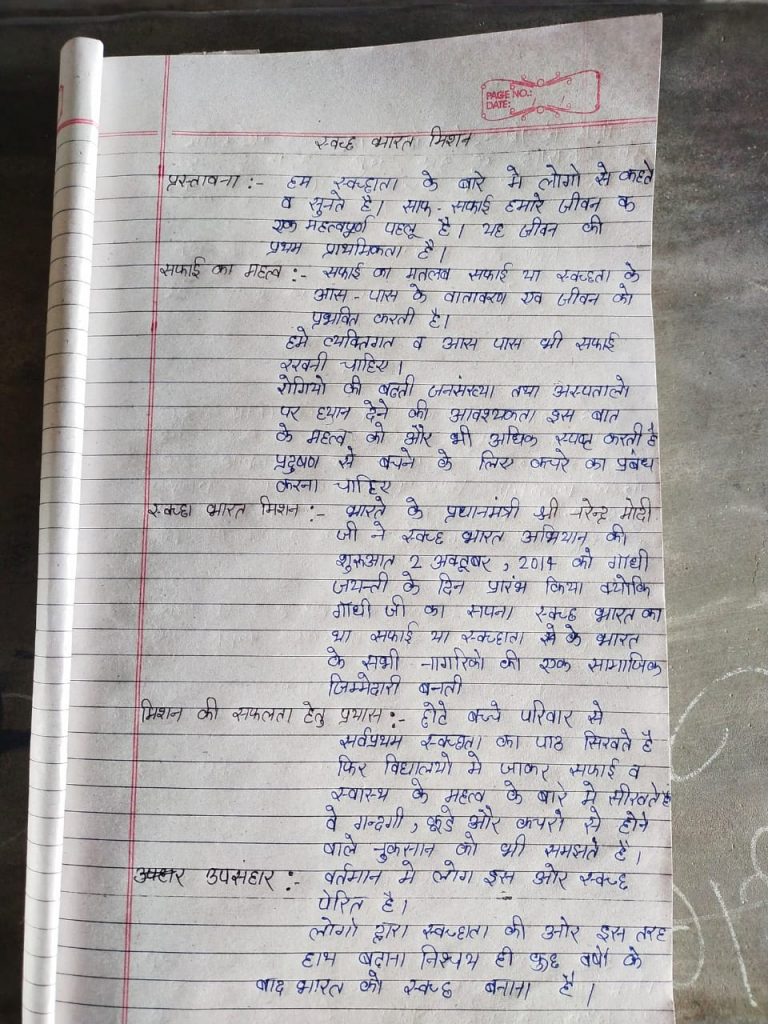 PAGE NO.:
DATE:
स्वच्छ भारत मिशन
प्रस्तावना :- हम स्वच्छता के बारे मे लोगो से कहते
व सुनते है। साफ - सफाई हमारे जीवन के
एक महत्वपूर्ण पहलू है। यह जीवन की
प्रथम प्राथमिकता है।
सफाई का महत्व :- सफाई का मतलब सफाई या स्वच्छता के
आस - पास के वातावरण एव जीवन को
प्रभवित करती है।
हमे व्यक्तिगत व आस पास भी सफाई
रखनी चाहिए।
रोगियो की बढती जनसंख्या तथा अस्पतालो
पर ध्यान देने की आवश्यकता इस बात
के महत्व को और भी अधिक स्पष्ट करती है
प्रदुषण से बचने के लिए कचरे का प्रबंध
करना चाहिए
स्वच्छ भारत मिशन :- भारत के प्रधानमंत्री श्री नरेन्द्र मोदी
जी ने स्वच्छ भारत अभियान की
शुरूआत 2 अक्टूबर, 2014 को गांधी
जयन्ती के दिन प्रारंभ किया क्योकि
गांधी जी का सपना स्वच्छ भारत का
था सफाई या स्वच्छता के भारत
के सभी नागरिको की एक सामाजिक
जिम्मेदारी बनती
मिशन की सफलता हेतु प्रयास :- छोटे बच्चे परिवार से
सर्वप्रथम स्वच्छता का पाठ सिखते है
फिर विद्यालयो मे जाकर सफाई व
स्वास्थ के महत्व के बारे मे सीखते है
वे गन्दगी, कूडे और कचरो से होने
वाले नुकसान को भी समझते है।
उपसंहार :- वर्तमान मे लोग इस ओर स्वच्छ
पेरित है।
लोगो द्वारा स्वच्छता की ओर इस तरह
हाथ बढाना निश्चय ही कुछ वर्षो के
बाद भारत को स्वच्छ बनाना है।